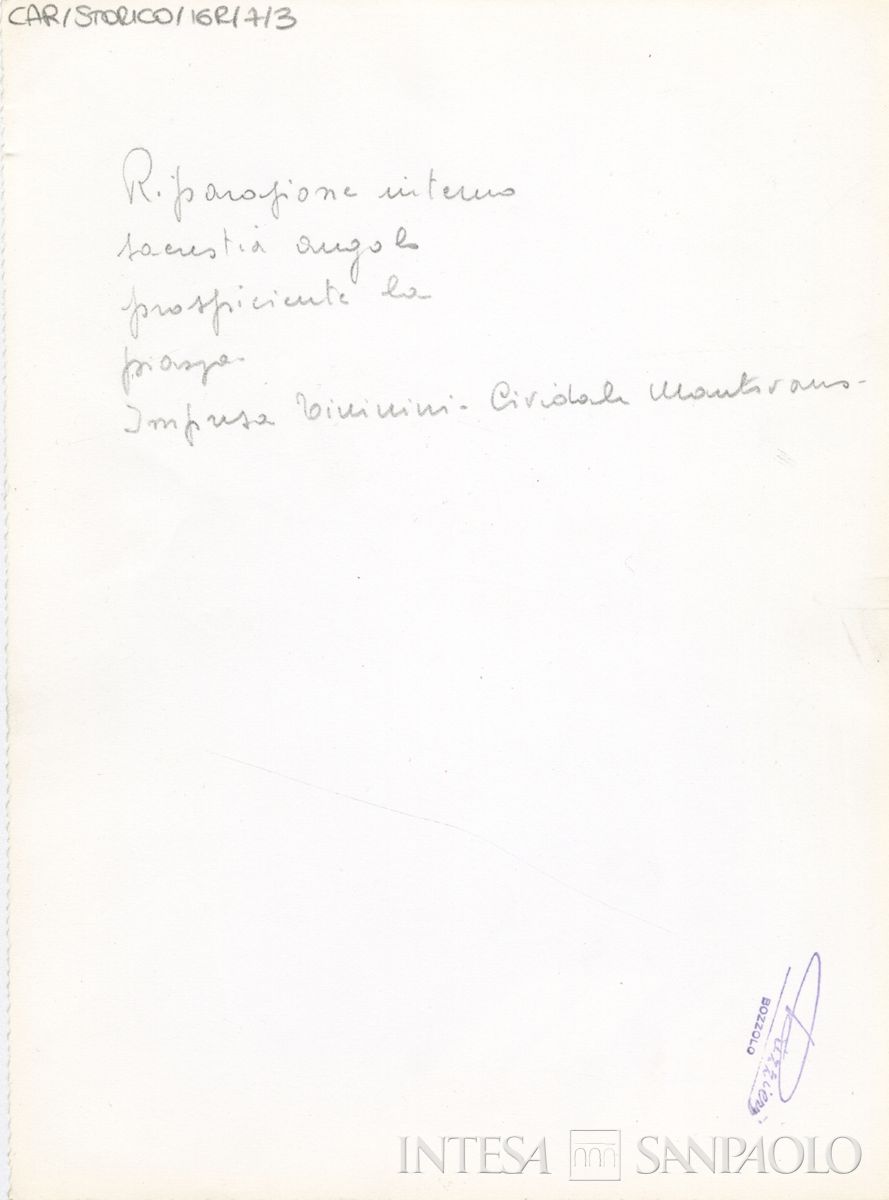 CAR/STORICO/16R/7/3
Riparazione interno
sacrestia angolo
prospiciente la
piazza
Impresa - Cividale Mantovano -
BOZZOLO
INTESA SANPAOLO